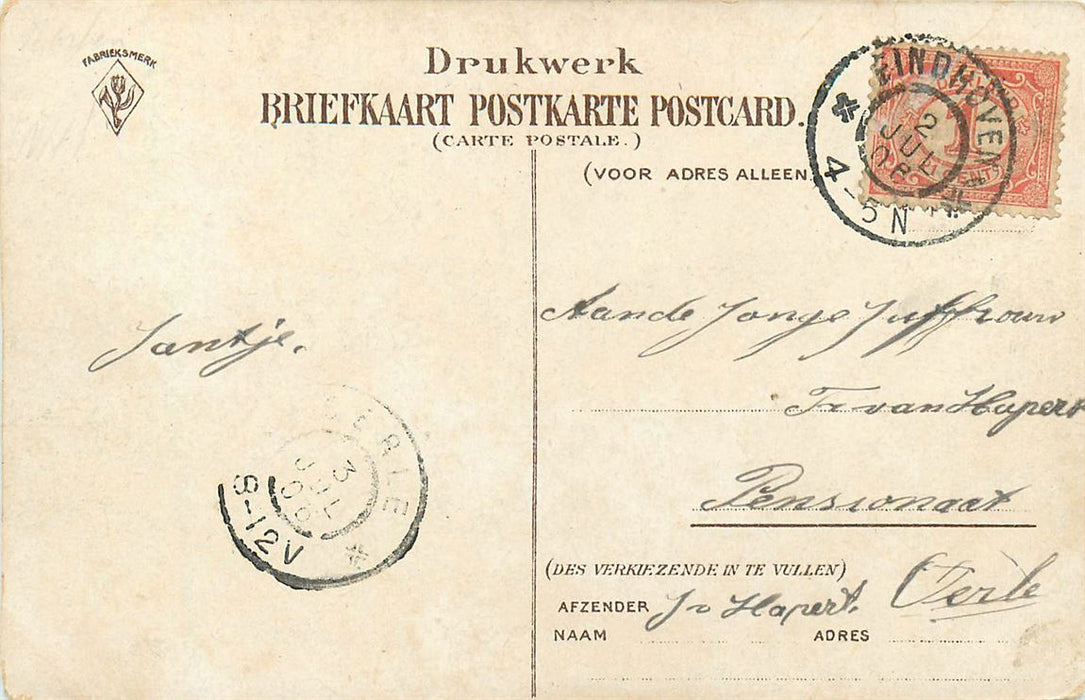 FABRIEKSMERK
Drukwerk
BRIEFKAART POSTKARTE POSTCARD.
(CARTE POSTALE.)
(VOOR ADRES ALLEEN
EINDHOVEN
2
JUL
08
4-5N
Aan de Jonge Juffrouw
Jantje.
van Hapert
Pensionaat
3
JUL
8-12V
(DES VERKIEZENDE IN TE VULLEN)
AFZENDER J v Hapert.
Oerle
NAAM
ADRES